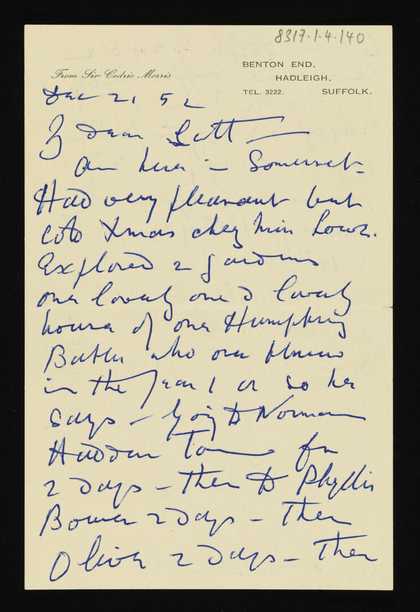 8317·1·4·140
From Sir Cedric Morris
BENTON END,
HADLEIGH,
TEL. 3222. SUFFOLK.
Dec 21 5
dear Lett —
am here in Somerset -
Had very pleasant but
cold Xmas chez
Explored 2 gardens
one lovely one & lovely
house of one Humphrey
who one knew
in the year 1 or so he
says — going to Norman
Hadden for
2 days — then to Phyllis
Bower 2 days — then
Oliver 2 days — then